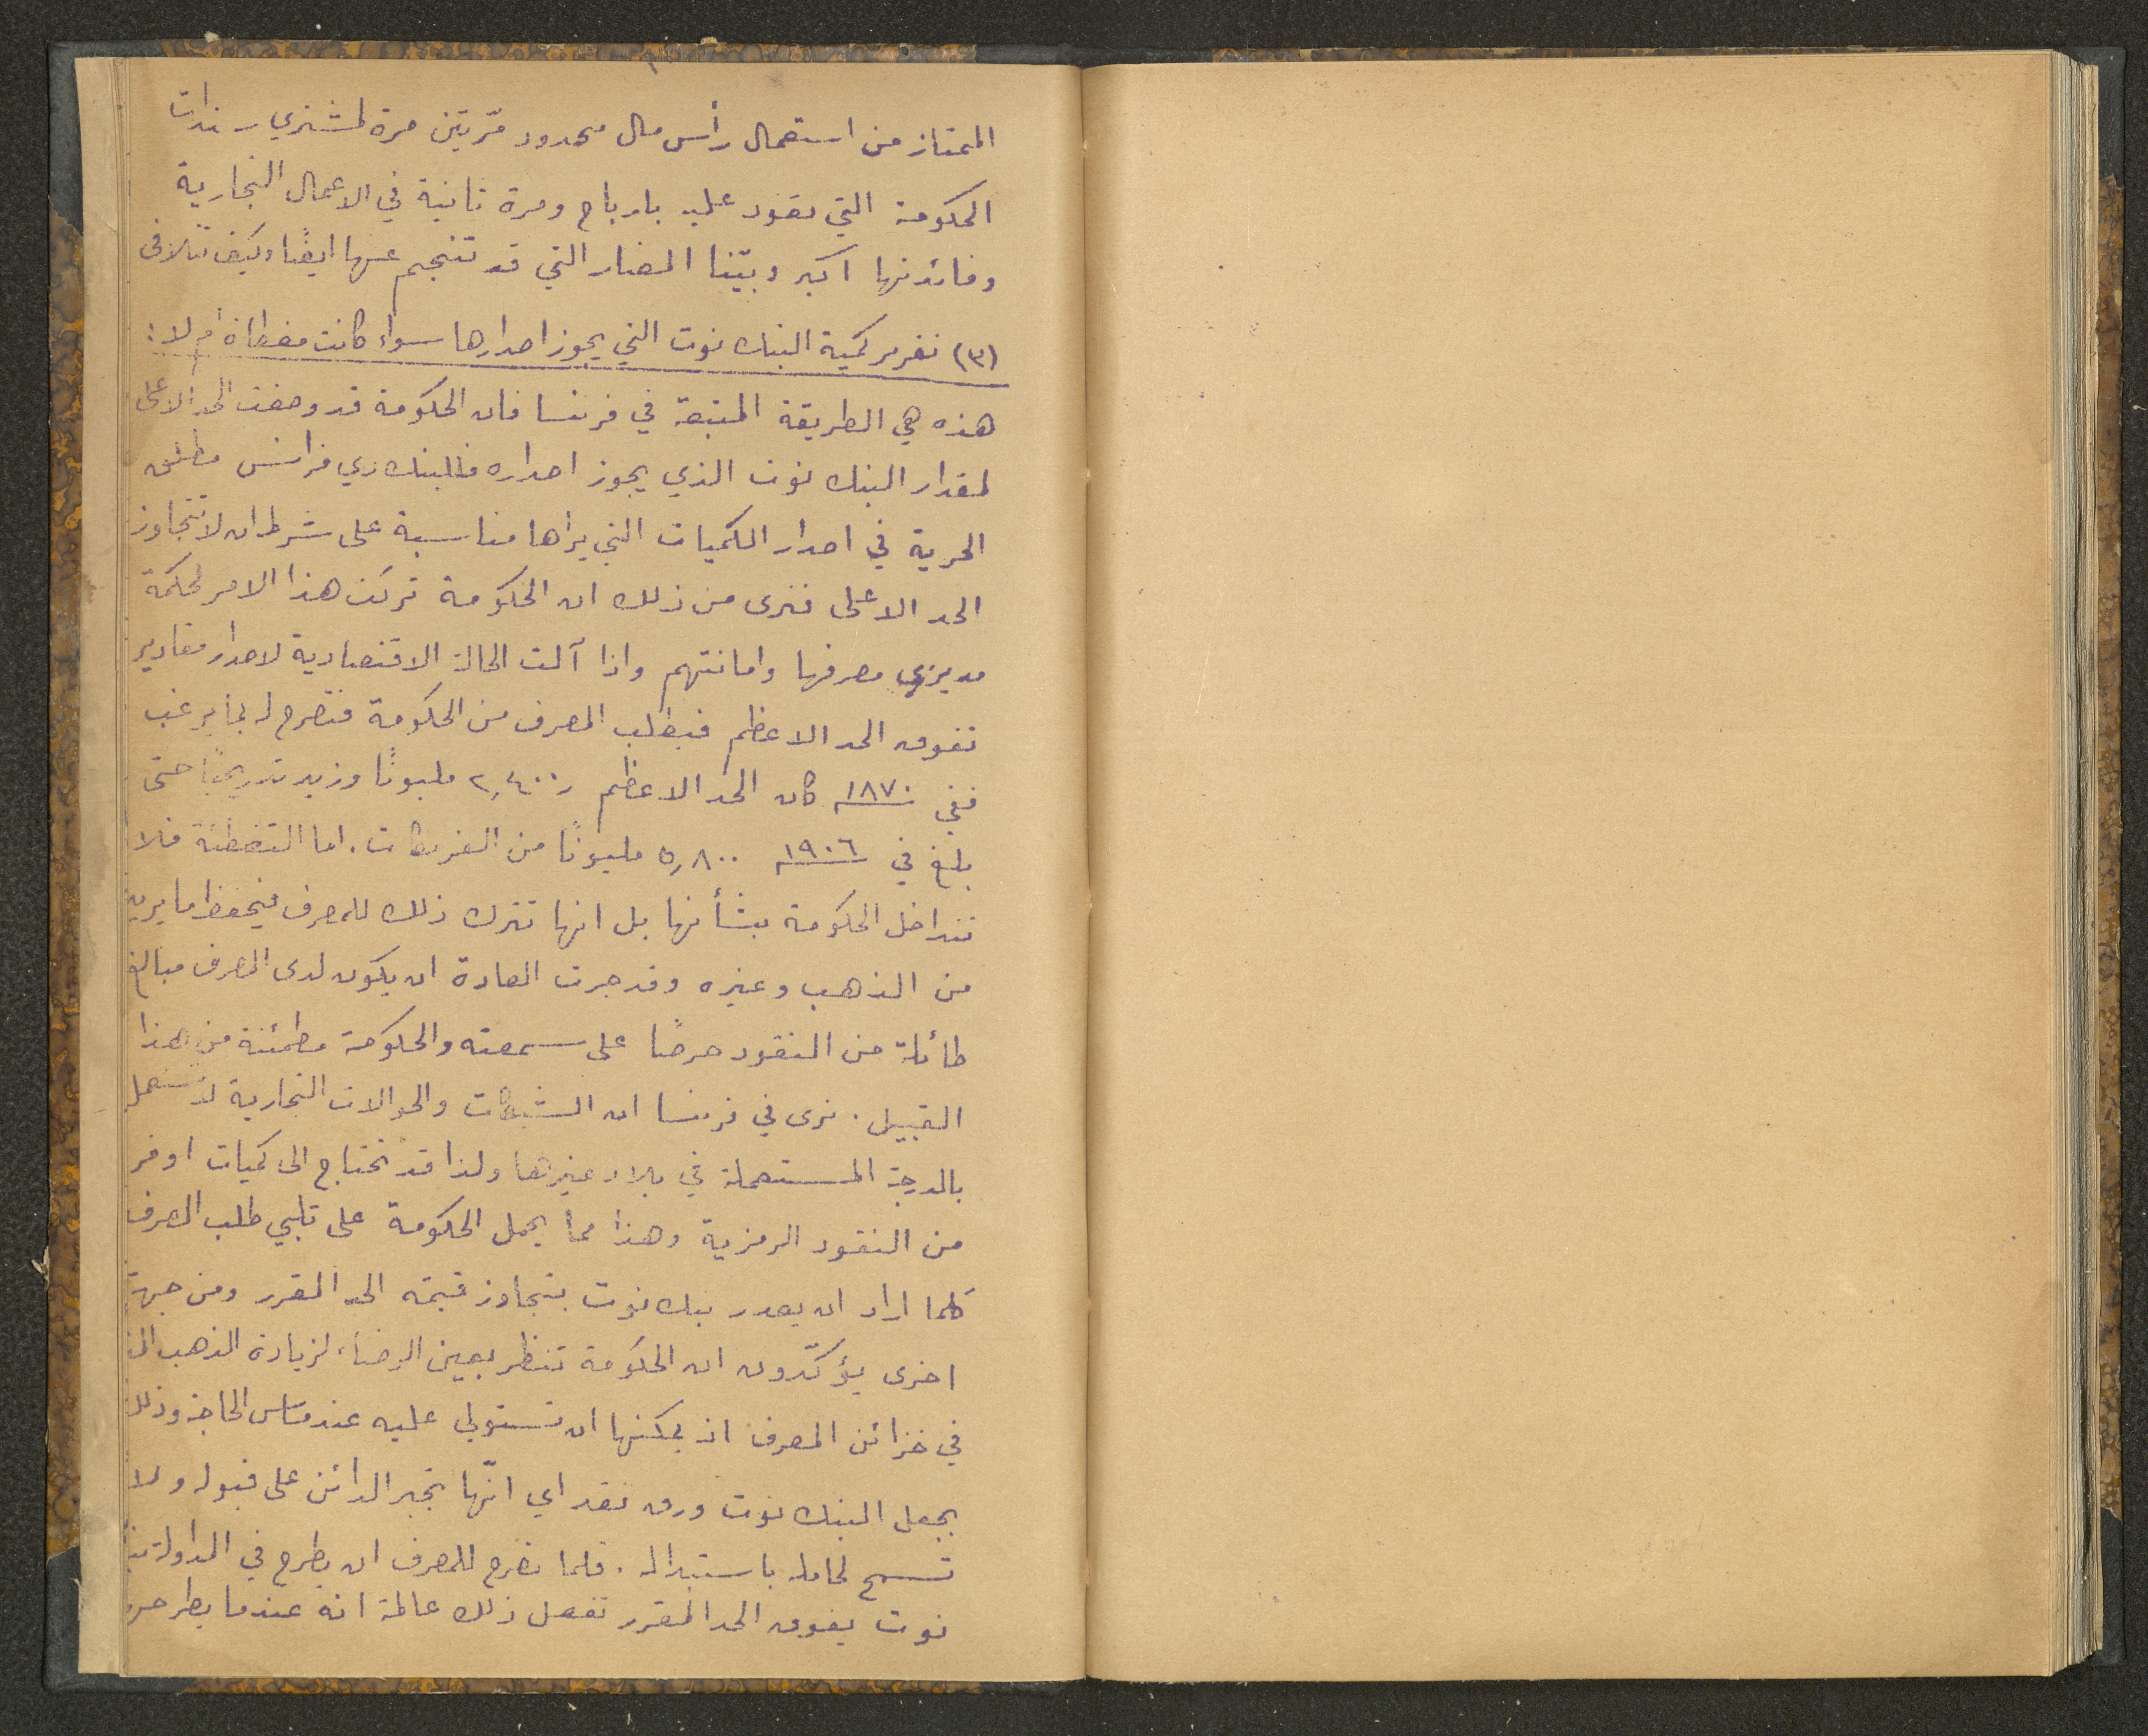 الممتاز من استعمال رأس مال محدود مرّتين مرة لمشتري سندات
الحكومة التي تعود عليه بارباح ومرة ثانية في الاعمال التجارية
وفائدتها اكبر وبيّنا المضار التي قد تنجم عنها ايضًا وكيف تتلافى
(٣) تقرير كمية البنك نوت التي يجوز اصدارها سواء كانت مغطاة ام لا :
هذه هي الطريقة المتبعة في فرنسا فان الحكومة قد وضعت الحد الاعلى
لمقدار البنك نوت الذي يجوز اصداره فللبنك دي فرانس مطلق
الحرية في اصدار الكميات التي يراها مناسبة على شرط ان لا تتجاوز
الحد الاعلى فنرى من ذلك ان الحكومة تركت هذا الامر لحكمة
مديري مصرفها وامانتهم واذا آلت الحالة الاقتصادية لاصدار مقادير
تفوق الحد الاعظم فيطلب المصرف من الحكومة فتصرح له بما يرغب
ففي ١٨٧٠ كان الحد الاعظم ٢,٤٠٠ مليونًا وزيد تدريجيًا حتى
بلغ في ١٩٠٦ ٥,٨٠٠ مليونًا من الفرنكات . اما التغطية فلا
تتداخل الحكومة بشأنها بل انها تترك ذلك للمصرف فيحفظ ما يريد
من الذهب وغيره وقد جرت العادة ان يكون لدى المصرف مبالغ
طائلة من النقود حرصًا على سمعته والحكومة مطمئنة من هذا
القبيل . نرى في فرنسا ان الشيكات والحوالات التجارية لا تستعمل
بالدرجة المستعملة في بلاد غيرها ولذا قد تحتاج الى كميات اوفر
من النقود الرمزية وهذا مما يحمل الحكومة على تلبي طلب المصرف
كلما اراد ان يصدر بنك نوت يتجاوز قيمته الحد المقرر ومن جهة
اخرى يؤكّدون ان الحكومة تنظر بعين الرضاء لزيادة الذهب
في خزائن المصرف اذ يمكنها ان تستولي عليه عند مساس الحاجة وذلك
بجعل البنك نوت ورق نقد اي انّها تجبر الدائن على قبوله ولا
تسمح لحامله باستبداله . فلما تصرح للمصرف ان يطرح في المداولة بنك
نوت يفوق الحد المقرر تفعل ذلك عالمة انه عندما يطرحه